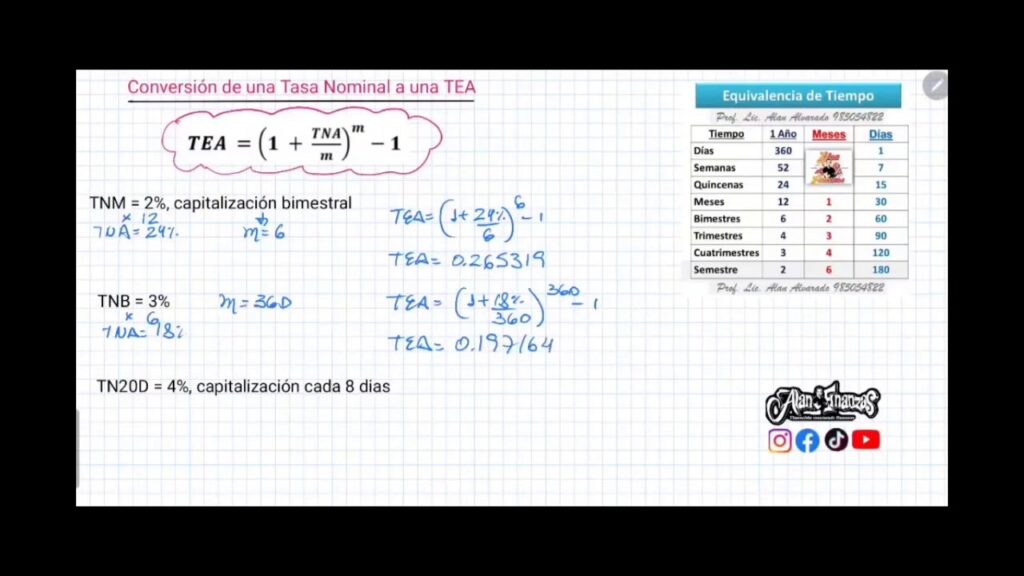 Conversión de una Tasa Nominal a una TEA
TEA = (1 + TNA/m)^m − 1
TNM = 2%, capitalización bimestral
x 12
TNA = 24%.
m = 6
TEA = (1 + 24%/6)^6 − 1
TEA = 0.265319
TNB = 3%
x 6
TNA = 18%
m = 360
TEA = (1 + 18%/360)^360 − 1
TEA = 0.197164
TN20D = 4%, capitalización cada 8 dias
Equivalencia de Tiempo
Prof. Lic. Alan Alvarado 985054822
Tiempo 1 Año Meses Días
Días 360 1
Semanas 52 7
Quincenas 24 15
Meses 12 1 30
Bimestres 6 2 60
Trimestres 4 3 90
Cuatrimestres 3 4 120
Semestre 2 6 180
Prof. Lic. Alan Alvarado 985054822
Alan Finanzas